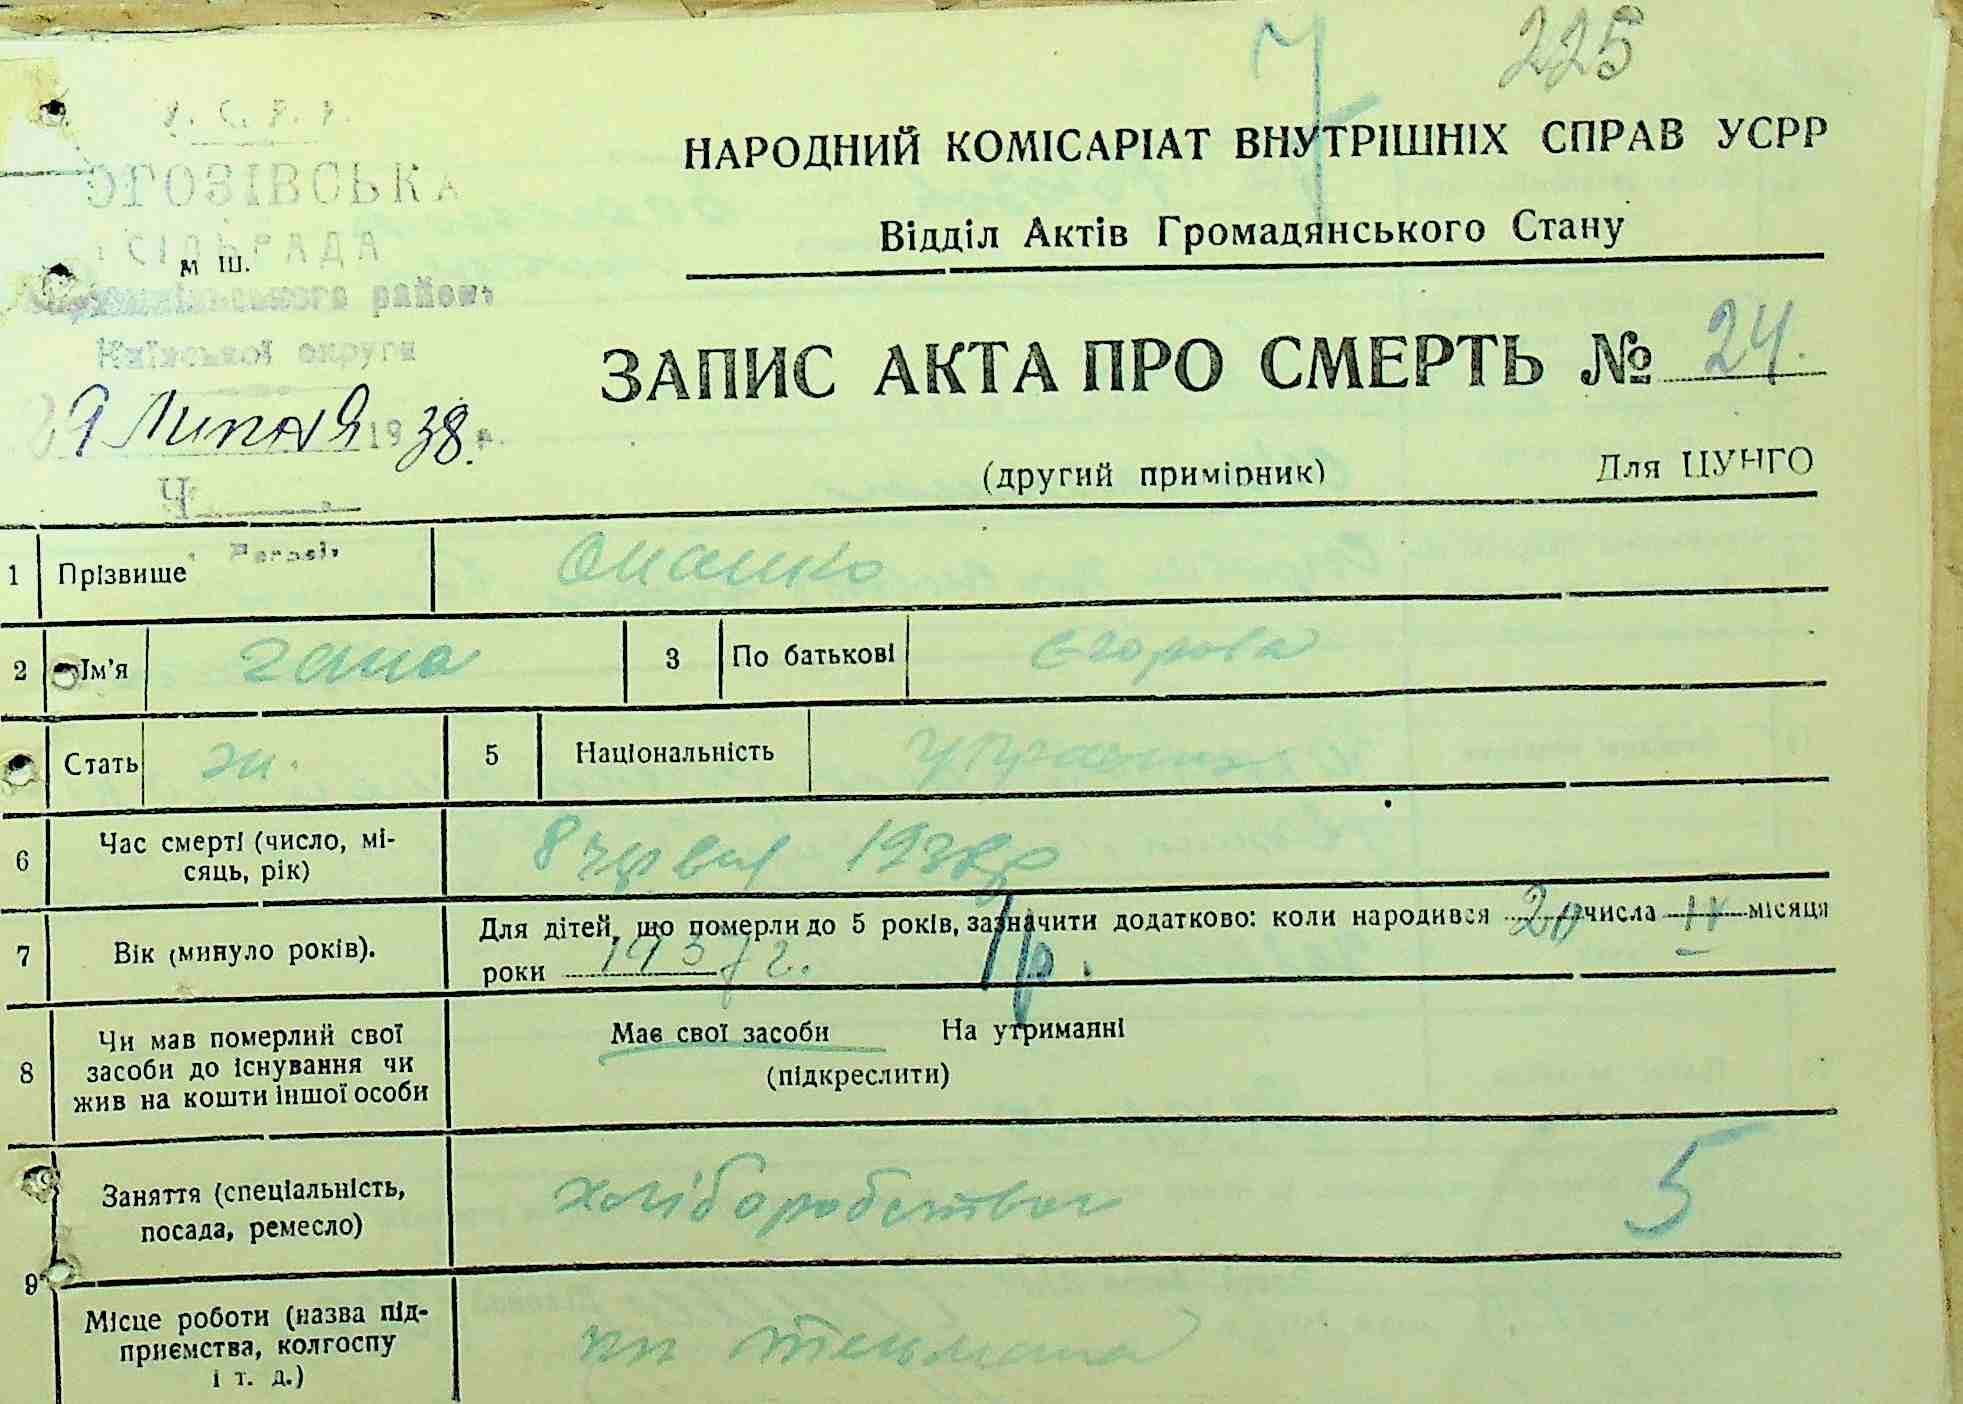 7
225
У. С. Р. Р.
НАРОДНИЙ КОМІСАРІАТ ВНУТРІШНІХ СПРАВ УСРР
ОГОЗІВСЬКА
СІЛЬРАДА
м ш.
Відділ Актів Громадянського Стану
району
Київської округи
ЗАПИС АКТА ПРО СМЕРТЬ № 24.
9 Липня 1938 р.
(другий примірник) Для ЦУНГО
Ч
1 Прізвище Опанко
2 Ім'я гана 3 По батькові Єгорова
Стать ж. 5 Національність
6 Час смерті (число, мі-
сяць, рік) 8 червня 1938р
7 Вік (минуло років). Для дітей, що померли до 5 років, зазначити додатково: коли народився 20 числа IV місяця
роки 1937 г. 1р.
8 Чи мав померлий свої
засоби до існування чи
жив на кошти іншої особи Має свої засоби На утриманні
(підкреслити)
9 Заняття (спеціальність,
посада, ремесло) хліборобство 5
Місце роботи (назва під-
приємства, колгоспу
і т. д.) тельмана